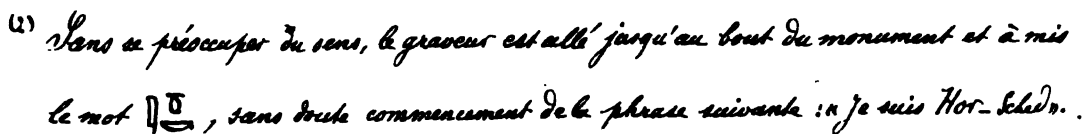 (2) Sans se préoccuper du sens, le graveur est allé jusqu'au bout du monument et à mis
le mot 𓇋𓏌𓎡, sans doute commencement de la phrase suivante : « Je suis Hor-Sched».